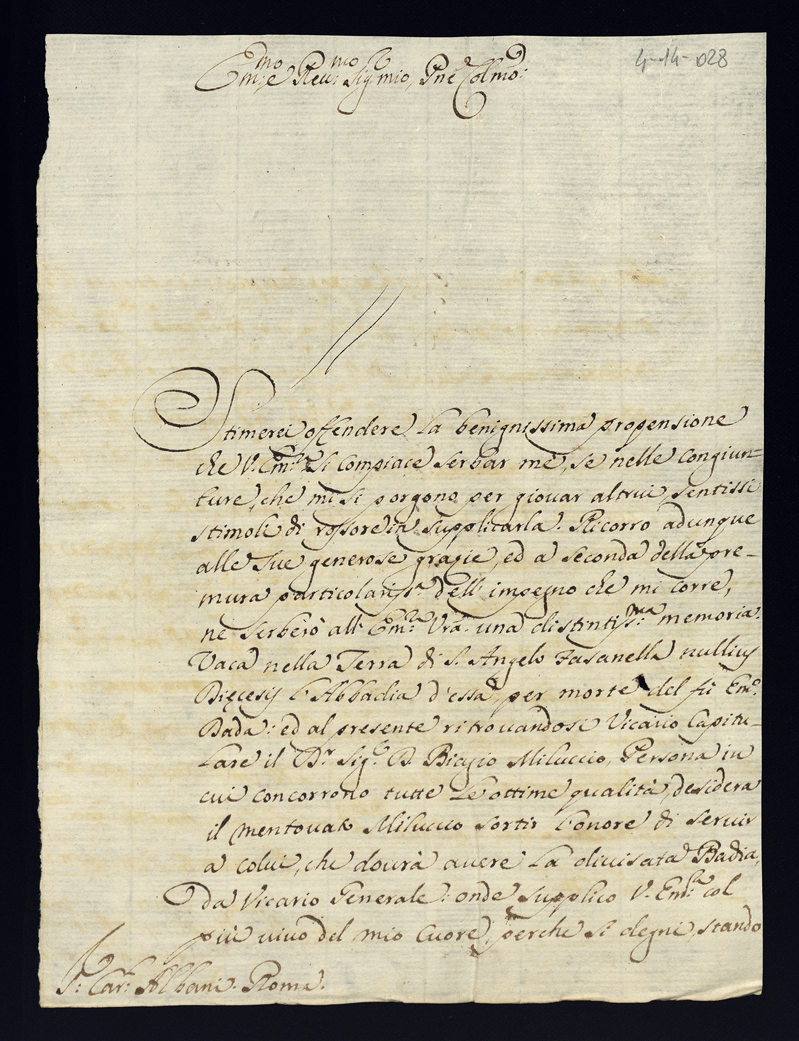 4-14-028
Em:mo e Reu:mo Sig mio, Pne Colmo:
Stimerei offendere la benignissima propensione
che V. Em:za si compiace serbar me, se nelle congiun-
ture, che mi si porgono per giouar altrui, sentissi
stimoli di rossore in supplicarla. Ricorro adunque
alle sue generose grazie, ed a seconda della pre-
mura particolariss:a dell' impegno che mi corre,
ne serberò all' Em:za Vra una distintiss:ma memoria.
Vaca nella Terra di S. Angelo Fasanella nullius
Diecesis l'Abbadia d'essa, per morte del fù Em:o
Bada: ed al presente ritrouandosi Vicario Capitu-
lare il Dr. Sig:r D. Biagio Miluccio, Persona in
cui concorrono tutte le ottime qualità, desidera
il mentouato Miluccio sortir l'onore di seruir
a colui, che dourà auere la diuisata Badia,
da Vicario Generale: onde supplico V. Em:za col
più uiuo del mio Cuore, perche si degni, stando
S: Car: Albani. Roma.